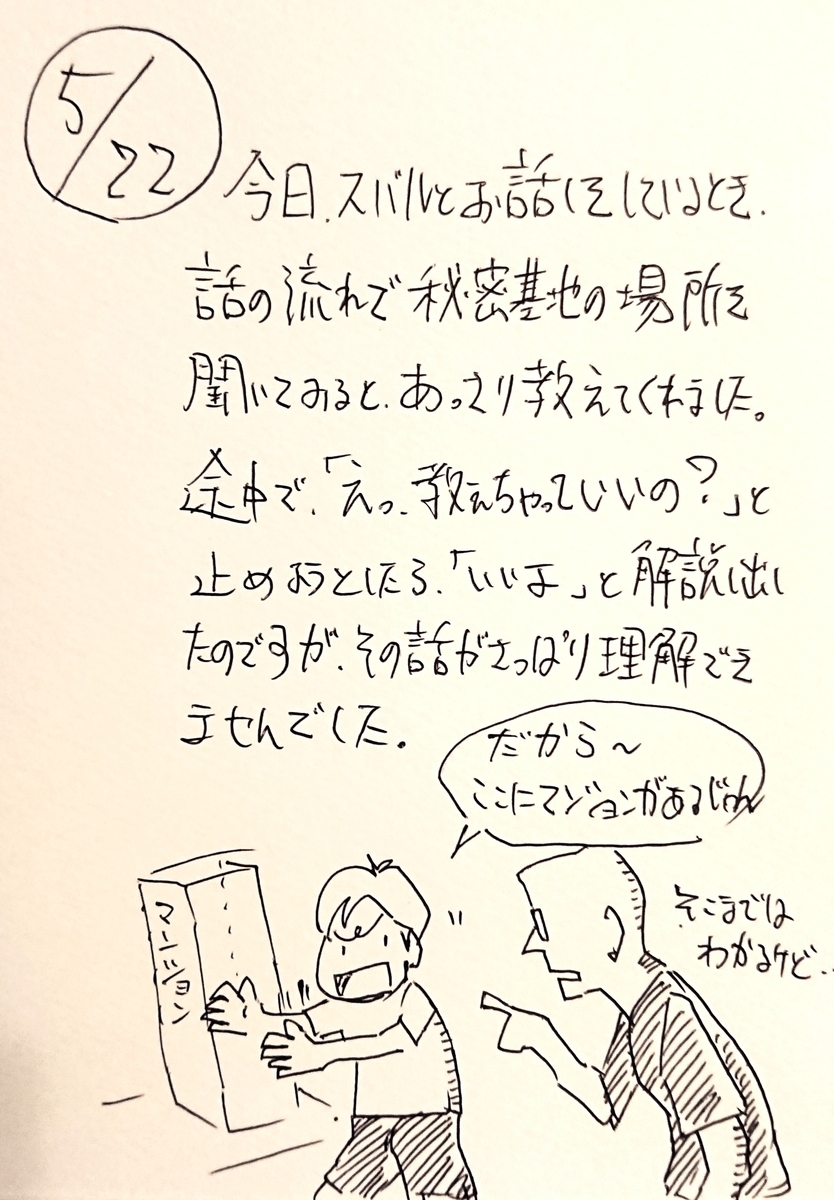 5/22
今日、スバルとお話しをしているとき、
話の流れで秘密基地の場所を
聞いてみると、あっさり教えてくれました。
途中で、「えっ、教えちゃっていいの?」と
止めようとしたら、「いいよ」と解説し出し
たのですが、その話がさっぱり理解でき
ませんでした。
だから〜
ここにマンションがあるじゃん
マンション
そこまでは
わかるけど…